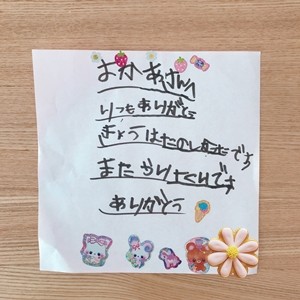 おかあさんへ
いつもありがとう
きょうはたのしかったです
またやりたいです
ありがとう